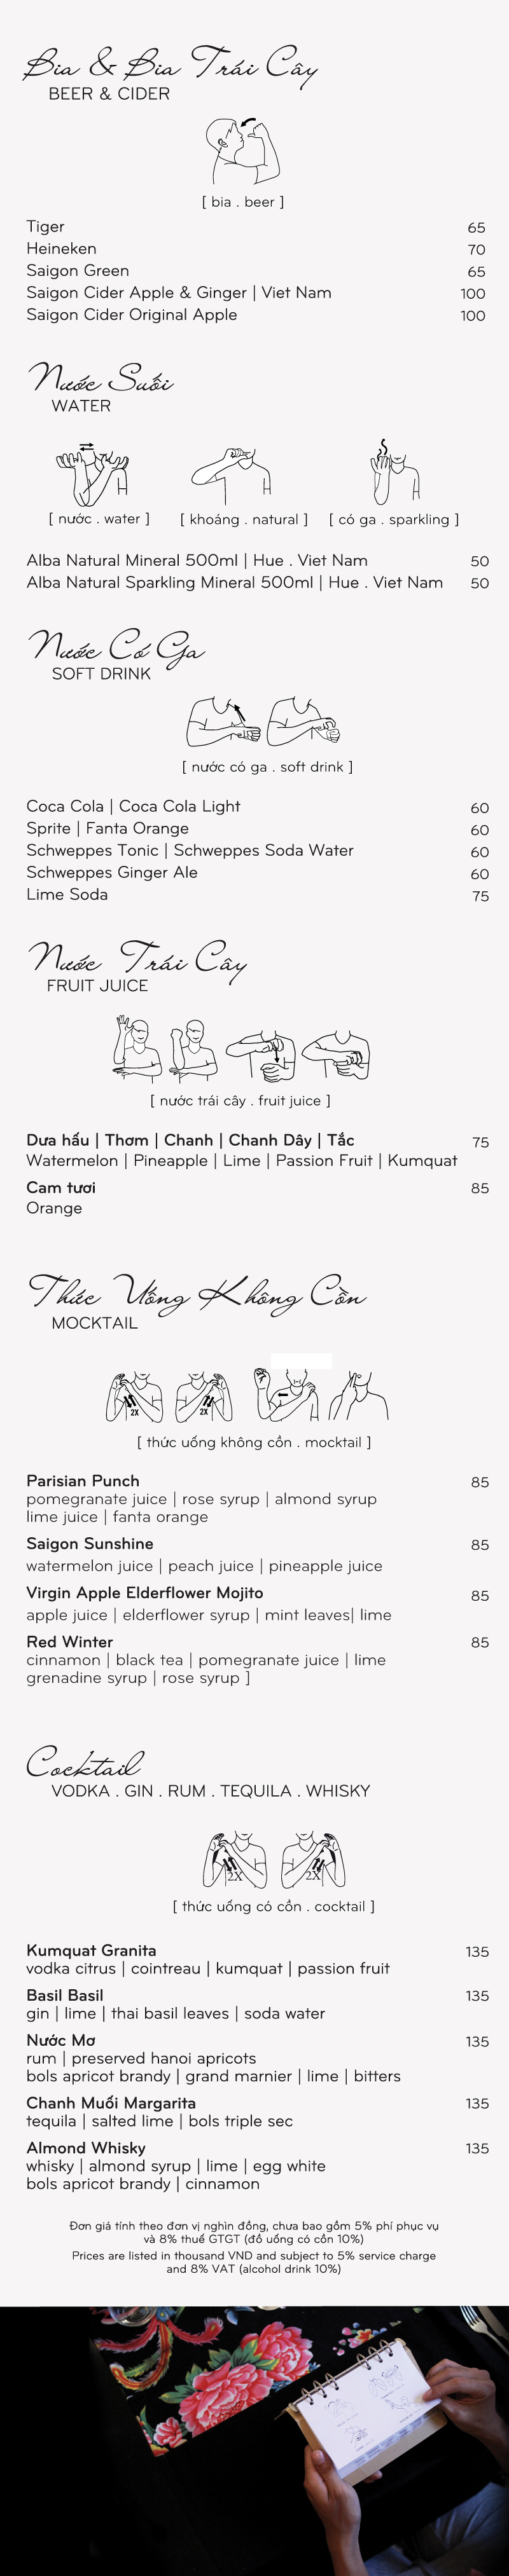 Bia & Bia Trái Cây
BEER & CIDER
[ bia . beer ]
Tiger 65
Heineken 70
Saigon Green 65
Saigon Cider Apple & Ginger | Viet Nam 100
Saigon Cider Original Apple 100
Nước Suối
WATER
[ nước . water ] [ khoáng . natural ] [ có ga . sparkling ]
Alba Natural Mineral 500ml | Hue . Viet Nam 50
Alba Natural Sparkling Mineral 500ml | Hue . Viet Nam 50
Nước Có Ga
SOFT DRINK
[ nước có ga . soft drink ]
Coca Cola | Coca Cola Light 60
Sprite | Fanta Orange 60
Schweppes Tonic | Schweppes Soda Water 60
Schweppes Ginger Ale 60
Lime Soda 75
Nước Trái Cây
FRUIT JUICE
[ nước trái cây . fruit juice ]
Dưa hấu | Thơm | Chanh | Chanh Dây | Tắc 75
Watermelon | Pineapple | Lime | Passion Fruit | Kumquat
Cam tươi 85
Orange
Thức Uống Không Cồn
MOCKTAIL
2X 2X
[ thức uống không cồn . mocktail ]
Parisian Punch 85
pomegranate juice | rose syrup | almond syrup
lime juice | fanta orange
Saigon Sunshine 85
watermelon juice | peach juice | pineapple juice
Virgin Apple Elderflower Mojito 85
apple juice | elderflower syrup | mint leaves| lime
Red Winter 85
cinnamon | black tea | pomegranate juice | lime
grenadine syrup | rose syrup ]
Cocktail
VODKA . GIN . RUM . TEQUILA . WHISKY
2X 2X
[ thức uống có cồn . cocktail ]
Kumquat Granita 135
vodka citrus | cointreau | kumquat | passion fruit
Basil Basil 135
gin | lime | thai basil leaves | soda water
Nước Mơ 135
rum | preserved hanoi apricots
bols apricot brandy | grand marnier | lime | bitters
Chanh Muối Margarita 135
tequila | salted lime | bols triple sec
Almond Whisky 135
whisky | almond syrup | lime | egg white
bols apricot brandy | cinnamon
Đơn giá tính theo đơn vị nghìn đồng, chưa bao gồm 5% phí phục vụ
và 8% thuế GTGT (đồ uống có cồn 10%)
Prices are listed in thousand VND and subject to 5% service charge
and 8% VAT (alcohol drink 10%)